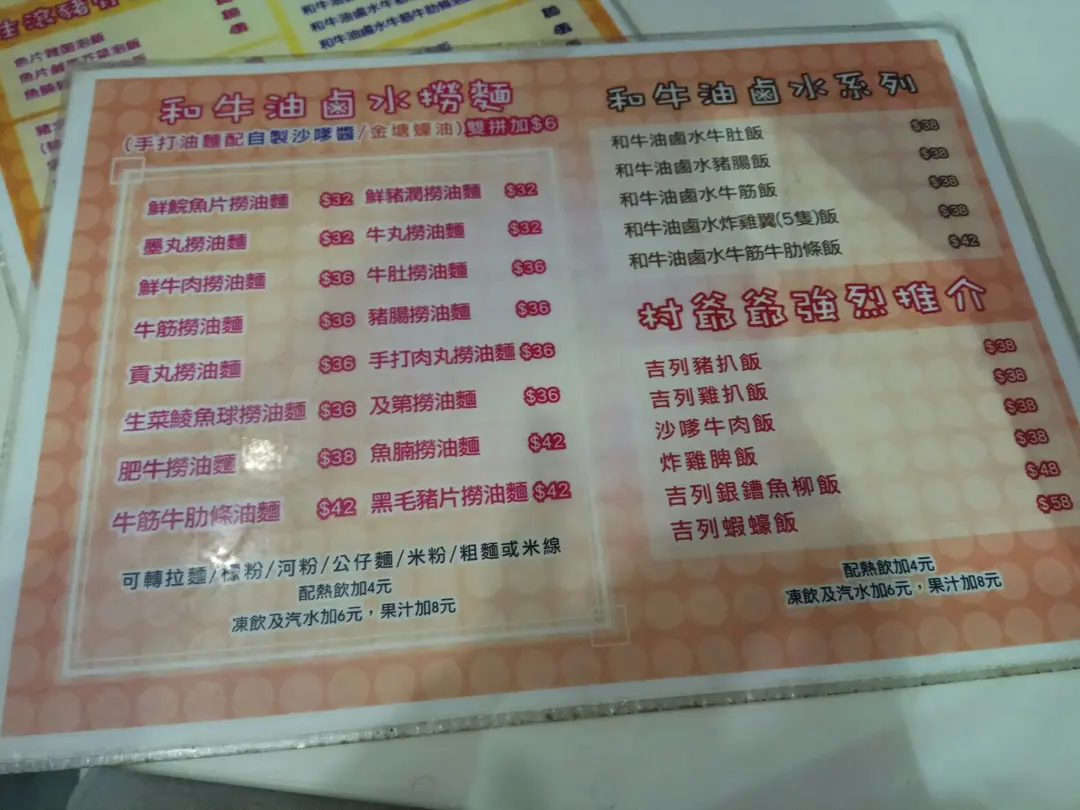 魚片雞閏泡飯
和牛油鹵水撈麵
(手打油麵配自製沙嗲醬/金塘蠔油)雙拼加$6
鮮鯇魚片撈油麵 $32 鮮豬潤撈油麵 $32
墨丸撈油麵 $32 牛丸撈油麵 $32
鮮牛肉撈油麵 $36 牛肚撈油麵 $36
牛筋撈油麵 $36 豬腸撈油麵 $36
貢丸撈油麵 $36 手打肉丸撈油麵 $36
生菜鯪魚球撈油麵 $36 及第撈油麵 $36
肥牛撈油麵 $38 魚腩撈油麵 $42
牛筋牛肋條油麵 $42 黑毛豬片撈油麵 $42
可轉拉麵/檬粉/河粉/公仔麵/米粉/粗麵或米線
配熱飲加4元
凍飲及汽水加6元，果汁加8元
和牛油鹵水系列
和牛油鹵水牛肚飯 $38
和牛油鹵水豬腸飯 $38
和牛油鹵水牛筋飯 $38
和牛油鹵水炸雞翼(5隻)飯 $38
和牛油鹵水牛筋牛肋條飯 $42
村爺爺強烈推介
吉列豬扒飯 $38
吉列雞扒飯 $38
沙嗲牛肉飯 $38
炸雞脾飯 $38
吉列銀鱈魚柳飯 $48
吉列蝦蠔飯 $58
配熱飲加4元
凍飲及汽水加6元，果汁加8元